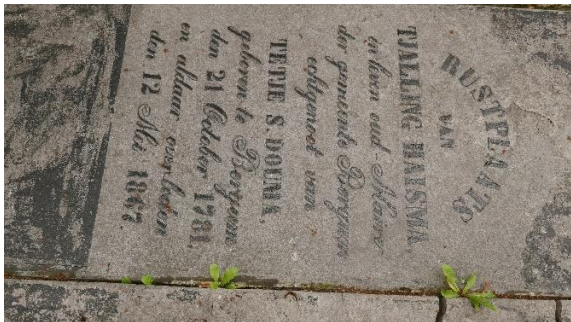 RUSTPLAATS
VAN
TJALLING HALSMA,
in leven oud-Maire
der gemeente Bergum
echtgenoot van
TETJE S. DOUMA,
geboren te Bergum
den 21 October 1781,
en aldaar overleden
den 12 Mei 1847